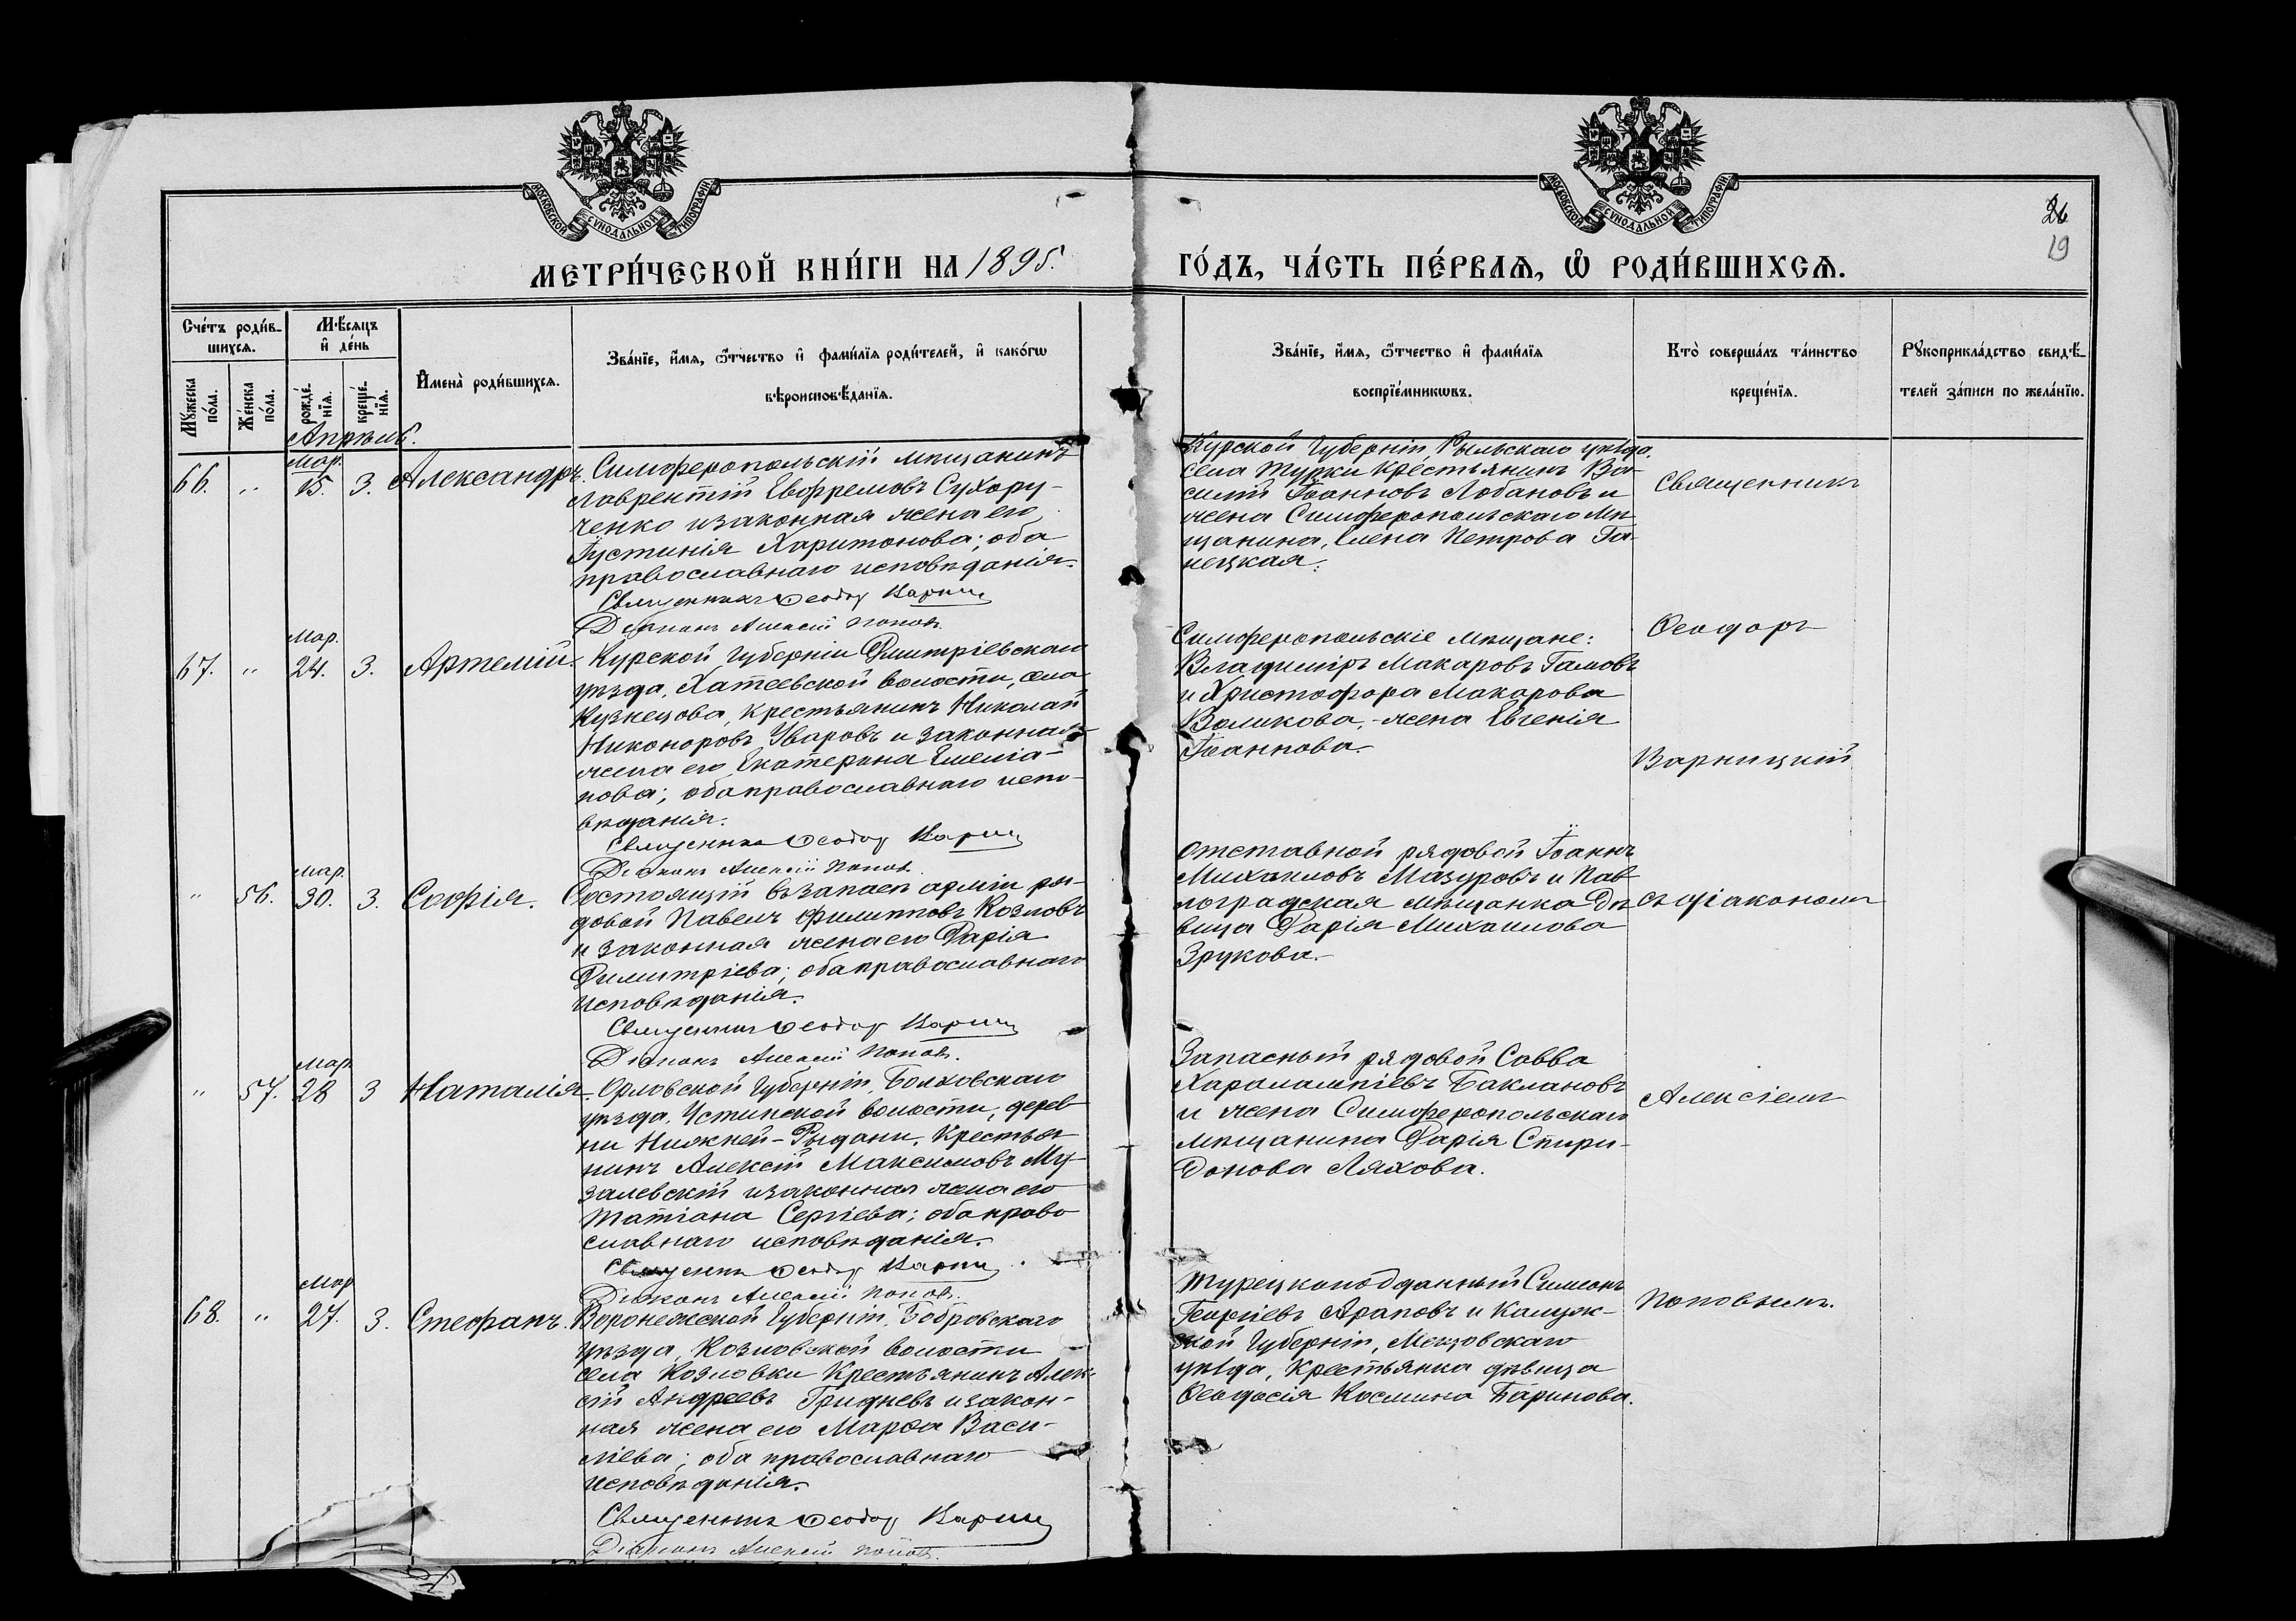 МОСКОВСКОЙ СѴНОДАЛЬНОЙ ТИПОГРАФІИ
МОСКОВСКОЙ СѴНОДАЛЬНОЙ ТИПОГРАФІИ
19
МЕТРИ́ЧЕСКОЙ КНИ́ГИ НА 1895.
ГО́ДЪ, ЧА́СТЬ ПЕ́РВАѦ, Ѽ РОДИ́ВШИХСѦ.
Сче́тъ роди́в-
шихсѧ.
Мꙋ́жеска по́ла.
Же́нска по́ла.
Мѣ́сѧцъ и҆ де́нь
рожде́нїѧ.
креще́нїѧ.
И҆мена̀ роди́вшихсѧ.
Зва́нїе, и҆́мѧ, ѻ҆́тчество и҆ фами́лїѧ роди́телей, и҆ како́гѡ
вѣроисповѣ́данїѧ.
Зва́нїе, и҆́мѧ, ѻ҆́тчество и҆ фами́лїѧ
воспрїе́мникѡвъ.
Кто̀ соверша́лъ та́инство
креще́нїѧ.
Рꙋкоприкла́дство свидѣ́-
телей за́писи по жела́нїю.
Апрѣль.
66. " Мар. 15. 3. Александръ.
Симферопольскій мѣщанинъ
Лаврентій Евфремовъ Сухору-
ченко и законная жена его
Іустинія Харитонова; оба
православнаго исповѣданія.
Священникъ Ѳеодоръ Варниц
Діаконъ Алексій Поповъ.
Курской Губерніи, Рыльскаго уѣзда,
села Турки крестьянинъ Ва-
силій Іоанновъ Лобановъ и
жена Симферопольскаго мѣ-
щанина, Елена Петрова Га-
нецкая.
Священникъ
67. " Мар. 24. 3. Артемій.
Курской Губерніи Дмитріевскаго
уѣзда, Хатеевской волости, села
Кузнецова, крестьянинъ Николай
Никоноровъ Уваровъ и законная
жена его Екатерина Емелiа-
нова; оба православнаго испо-
вѣданія.
Священникъ Ѳеодоръ Варниц
Діаконъ Алексій Поповъ.
Симферопольскіе мѣщане:
Владиміръ Макаровъ Гамовъ
и Христофора Макарова
Воликова, - жена Евгенія
Іоаннова.
Ѳеодоръ
Варницкій
" 56. Мар. 30. 3. Софія.
Состоящій въ запасѣ арміи ря-
довой Павелъ Филипповъ Козловъ
и законная жена его Дарія
Димитріева; оба православнаго
исповѣданія.
Священникъ Ѳеодоръ Варниц
Діаконъ Алексій Поповъ.
Отставной рядовой Іоаннъ
Михаиловъ Мазуровъ и Пав-
лоградская мѣщанка дѣ-
вица Дарія Михаилова
Зрукова.
съ діакономъ
" 57. Мар. 28 3 Наталія.
Орловской Губерніи, Болховскаго
уѣзда, Устинской волости, дерев-
ни Нижней-Рыдани, крестья-
нинъ Алексій Максимовъ Му-
залевскій и законная жена его
Татіана Сергіева; оба право-
славнаго исповѣданія.
Священникъ Ѳеодоръ Варниц
Діаконъ Алексій Поповъ.
Запасный рядовой Савва
Харалампіевъ Баклановъ
и жена Симферопольскаго
мѣщанина Дарія Спири-
донова Ляхова.
Алексіемъ
68. " Мар 27. 3. Стефанъ.
Воронежской Губерніи, Бобровскаго
уѣзда, Козловской волости
села Козловки крестьянинъ Алек-
сій Андреевъ Гридневъ и закон-
ная жена его Марѳа Васи-
лiева; оба православнаго
исповѣданія.
Священникъ Ѳеодоръ Варниц
Діаконъ Алексій Поповъ.
Турецкоподданный Симеонъ
Георгіевъ Араповъ и Калуж-
ской Губерніи, Мещовскаго
уѣзда, крестьянка дѣвица
Ѳеодосія Космина Баринова.
Поповымъ.